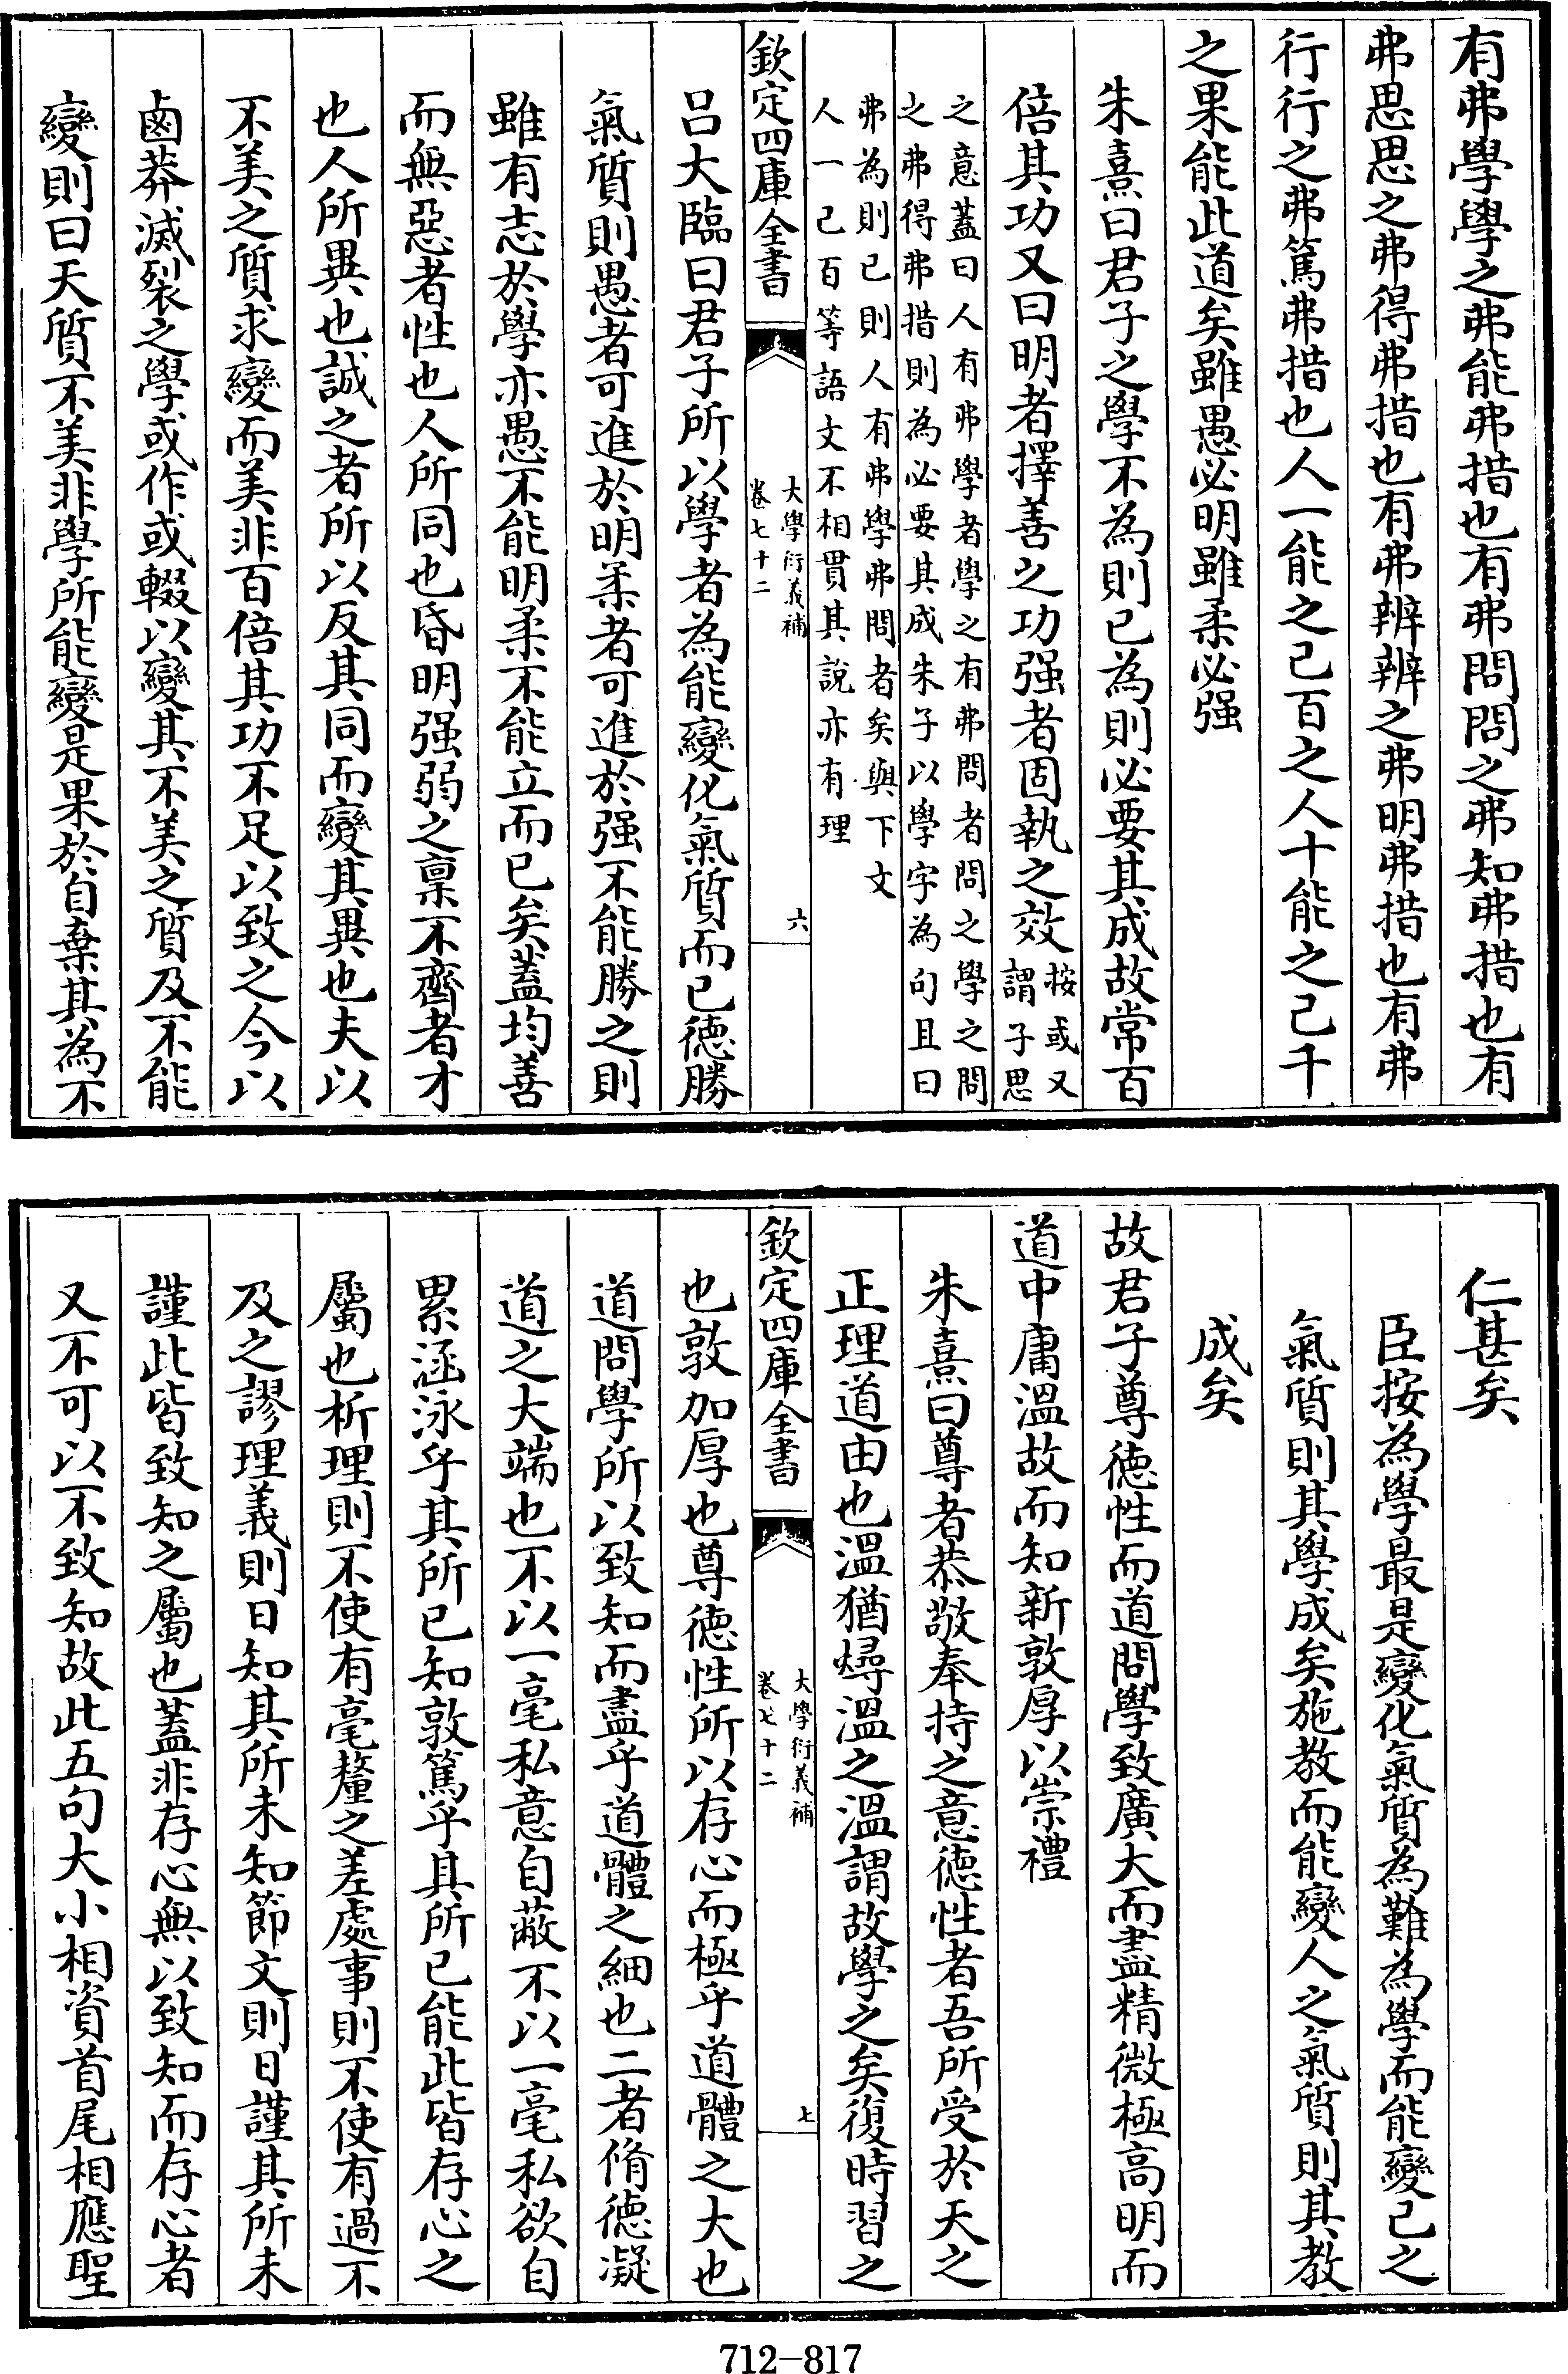 有弗學學之弗能弗措也有弗問問之弗知弗措也有
弗思思之弗得弗措也有弗辨辨之弗明弗措也有弗
行行之弗篤弗措也人一能之己百之人十能之己千
之果能此道矣雖愚必明雖柔必强
朱熹曰君子之學不為則已為則必要其成故常百
倍其功又曰明者擇善之功强者固執之效按或又
謂子思
之意蓋曰人有弗學者學之有弗問者問之學之問
之弗得弗措則為必要其成朱子以學字為句且曰
弗為則已則人有弗學弗問者矣與下文
人一己百等語文不相貫其說亦有理
欽定四庫全書
大學衍義補
卷七十二
六
呂大臨曰君子所以學者為能變化氣質而已德勝
氣質則愚者可進於明柔者可進於强不能勝之則
雖有志於學亦愚不能明柔不能立而已矣蓋均善
而無惡者性也人所同也昏明强弱之稟不齊者才
也人所異也誠之者所以反其同而變其異也夫以
不美之質求變而美非百倍其功不足以致之今以
鹵莽滅裂之學或作或輟以變其不美之質及不能
變則曰天質不美非學所能變是果於自棄其為不
仁甚矣
臣按為學最是變化氣質為難為學而能變己之
氣質則其學成矣施教而能變人之氣質則其教
成矣
故君子尊德性而道問學致廣大而盡精微極高明而
道中庸溫故而知新敦厚以崇禮
朱熹曰尊者恭敬奉持之意德性者吾所受於天之
正理道由也溫猶燖溫之溫謂故學之矣復時習之
欽定四庫全書
大學衍義補
卷七十二
七
也敦加厚也尊德性所以存心而極乎道體之大也
道問學所以致知而盡乎道體之細也二者脩德凝
道之大端也不以一毫私意自蔽不以一毫私欲自
累涵泳乎其所已知敦篤乎其所已能此皆存心之
屬也析理則不使有毫釐之差處事則不使有過不
及之謬理義則日知其所未知節文則日謹其所未
謹此皆致知之屬也蓋非存心無以致知而存心者
又不可以不致知故此五句大小相資首尾相應聖
712-817